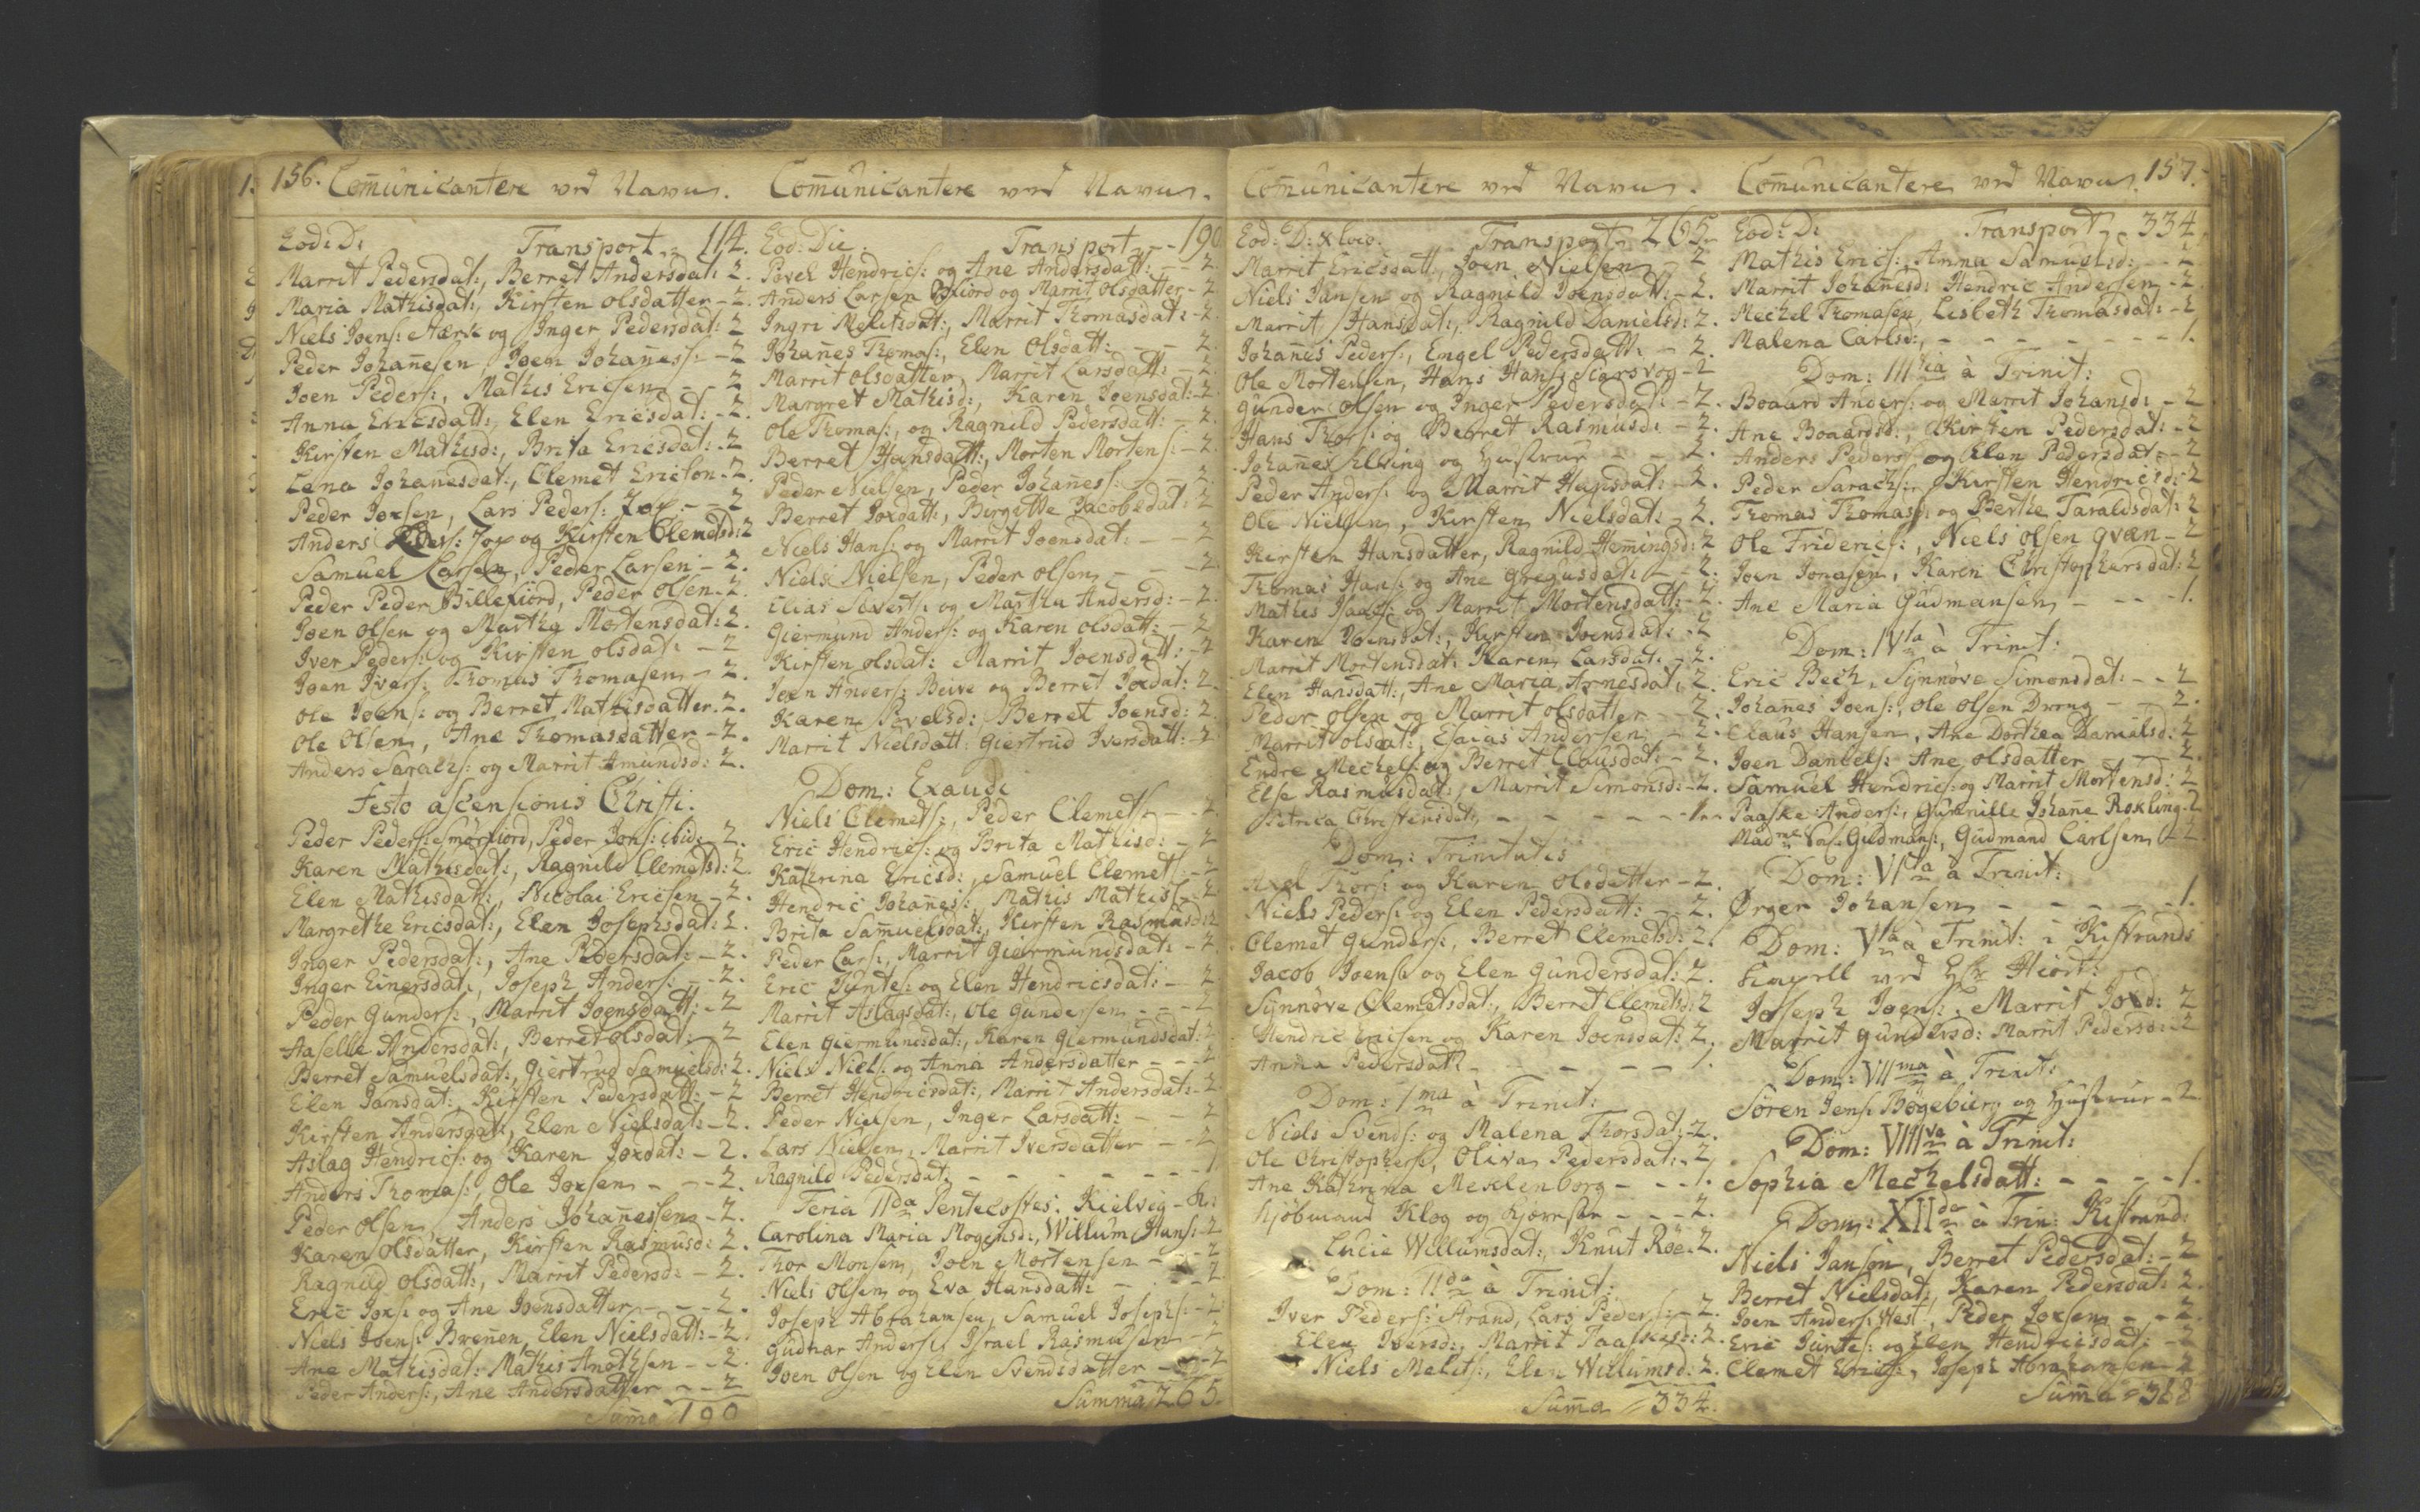 156. Com̄unicantere ved Navn.
Eod: D: Transport 114.
Marrit Pedersdat:, Berret Andersdat: 2.
Maria Mathisdat:, Kirsten olsdatter - 2.
Niels Joens: og Inger Pedersdat: 2
Peder Johan̄esen, Joen Johan̄ess: - 2
Joen Peders:, Mathis Ericsen - - 2
Anna Ericsdatt:, Elen Ericsdat: - 2.
Kirsten Mathisd:, Brita Ericsdat: - 2
Lena Johan̄esdat:, Clemet Ericson - 2.
Peder Joxsen, Lars Peders: Jox - - 2
Anders Jox og Kirsten Clemetsd: 2
Samuel Larsen, Peder Larsen - 2.
Peder Peder Billefiord, Peder Olsen - 2.
Joen olsen og Martha Mortensdat: 2.
Iver Peders: og Kirsten olsdat: - 2
Joen Ivers: Thomas Thomasen - 2.
Ole Joens: og Berret Mathisdatter. 2.
Ole Olsen, Ane Thomasdatter - 2.
Anders Sarachs: og Marrit Amundsd: 2.
Festo ascensionis Christi.
Peder Peders: Smörfiord, Peder Jons: ibid: - 2.
Karen Mathisdat:, Ragnild Clemetsd: 2.
Elen Mathisdat:, Nicolai Ericsen - 2.
Margrethe Ericsdat:, Elen Josephsdat: 2.
Inger Pedersdat:, Ane Pedersdat: - 2.
Inger Einersdat:, Joseph Anders: - 2.
Peder Gunders:, Marrit Joensdatt: - 2
Aaselle Andersdat:, Berret olsdat: - 2
Berret Samuelsdat:, Giertrud Samuelsd: 2.
Elen Jansdat:, Kirsten Pedersdatt: - 2
Kirsten Andersdat:, Elen Nielsdat: - 2.
Aslag Hendrics: og Karen Joxdat: - 2.
Anders Thomas:, Ole Joxsen - - - 2.
Peder Olsen, Anders Johan̄essen - 2.
Karen Olsdatter, Kirsten Rasmusd: 2.
Ragnild olsdatt:, Marrit Pedersd: - 2.
Eric Joxs: og Ane Joensdatter - - - 2.
Niels Joens: Bren̄en, Elen Nielsdatt: - 2.
Ane Mathisdat: Mathis - - 2.
Peder Anders:, Ane Andersdatter - - 2
Sum̄a 190
Com̄unicantere ved Navn.
Eod: Die. Transport - - 190
Povel Hendrics: og Ane Andersdatt: - - 2.
Anders Larsen og Marrit olsdatter - 2
Ingri Melitsdat:, Marrit Thomasdat: - 2.
Johan̄es Thomas:, Elen Olsdatt: - - 2.
Marrit olsdatter, Marrit Larsdatt: - 2.
Margret Mathisd:, Karen Joensdat: - 2.
Ole Thomas:, og Ragnild Pedersdatt: - 2.
Berret Hansdatt:, Morten Mortens: - 2.
Peder Nielsen, Peder Johan̄es: - - 2.
Berret Joxdatt:, Birgitte Jacobsdat: 2
Niels Hans: og Marrit Joensdat: - - 2
Niels Nielsen, Peder olsen - - - 2.
Elias Siverts: og Martha Andersd: - 2.
Giermund Anders: og Karen olsdatt: - 2
Kirsten olsdat: Marrit Joensdatt: - 2
Joen Anders: Beive og Berret Joxdat: 2.
Karen Povelsd: Berret Joensd: 2.
Marrit Nielsdatt: Giertrud Iversdatt: - 2
Dom: Exaudi
Niels Clemets:, Peder Clemets: - - 2
Eric Hendrics: og Brita Mathisd: - 2
Kathrina Ericsd:, Samuel Clemet: - 2
Hendric Johan̄es:, Mathis Mathis: - 2
Brita Sam̄uelsdat:, Kirsten Rasmusd: 2
Peder Lars:, Marrit Giermundsdat: - 2
Eric Juntes: og Elen Hendricsdat: - 2
Marrit Aslagsdat:, Ole Gundersen - - - 2
Elen Giermundsdat:, Karen Giermundsdat: 2
Niels Niels: og Anna Andersdatter - - - 2
Berret Hendricsdat:, Marrit Andersdat: - 2
Peder Nielsen, Inger Larsdatt: - - 2
Lars Nielsen, Marrit Iversdatter - - 2
Ragnild Pedersdat: - - - - - - - 1
Feria IIda Pentecostes: Kielvig - K:
Carolina Maria Mogensd:, Willum Hans: 2
Thor Monsen, Joen Mortensen - 2
Niels Olsen og Eva Hansdatt: - - - 2
Joseph Abrahamsen, Samuel Josephs: - 2
Gudnar Anders:, Israel Rasmusen 2
Joen olsen og Elen Svendsdatter - 2
Summa 265.
Com̄unicantere ved Navn.
Eod: D: & loco. Transport 265
Marrit Ericsdatt:, Joen Nielsen - 2
Niels Jansen og Ragnild Joensdatt: - 2.
Marrit Hansdat:, Ragnild Danielsd: 2.
Johan̄es Peders:, Engel Pedersdatt: - 2.
Ole Mortensen, Hans Hans: Skarsvog - 2
Gunder olsen og Inger Pedersdat: - 2.
Hans Thors: og Berret Rasmusd: - 2.
Johan̄es Elving og Hustrue - - 2.
Peder Anders: og Marrit Hansdat: - 2.
Ole Nielsen, Kirsten Nielsdat: - 2.
Kirsten Hansdatter, Ragnild Hem̄ingsd: 2
Thomas Hans: og Ane Gregusdat: - 2.
Mathis Isacs: og Marrit Mortensdatt: - 2.
Karen Joensdat:, Kirsten Joensdat: - 2
Marrit Mortensdat: Karen Larsdat: - 2.
Elen Hansdatt:, Ane Maria Arnesdat: 2.
Peder olsen og Marrit olsdatter - - 2.
Marrit olsdat:, Esaias Andersen - - 2.
Endre Mechels: og Berret Clausdat: - 2.
Else Rasmusdat:, Marrit Simonsd: - 2.
Petrica Christensdat: - - - - - 1.
Dom: Trinitatis
Axel Thors: og Karen olsdatter - 2.
Niels Peders: og Elen Pedersdatt: - 2.
Clemet Gunders:, Berret Clemetsd: 2.
Jacob Joens: og Elen Gundersdat: 2.
Synnöve Clemetsdat:, Berret Clemetsd: 2
Hendric Ericsen og Karen Joensdat: 2.
Anna Pedersdatt: - - - - - 1.
Dom: 1ma à Trinit:
Niels Svends: og Malena Thorsdat: - 2.
Ole Christophers:, Oliva Pedersdat: - 2
Ane Kathrina Mecklenborg - - - 1.
Kjöbmand Klog og Kjæreste - - - 2.
Lucie Willumsdat:, Knut Röe - 2.
Dom: IIda à Trinit:
Iver Peders: Strand, Lars Peders: - 2.
Elen Iversd:, Marrit Paaskesd: 2.
Niels Melits:, Elen Willumsd: 2.
Sum̄a 334.
Com̄unicantere ved Navn. 157.
Eod: D: Transport - 334.
Mathis Erics:, Anna Samuelsd: - - 2
Marrit Johan̄esd: Hendric Andersen - 2.
Mechel Thomasen, Lisbeth Thomasdat: - 2
Malena Carlsd: - - - - - - - 1.
Dom: IIItia à Trinit:
Boaard Anders: og Marrit Johansd: - 2
Ane Boaardsd:, Kirsten Pedersdat: - 2
Anders Peders: og Elen Pedersdat: - 2
Peder Sarachs:, Kirsten Hendricsd: 2
Thomas Thomas: og Berthe Taraldsdat: 2
Ole Friderics:, Niels olsen Qvæn - 2
Joen Jonasen, Karen Christophersdat: 2
Ane Maria Gudmansen - - - - 1.
Dom: IVta à Trinit:
Eric Bech, Synnöve Simonsdat: - - 2
Johan̄es Joens:, Ole Olsen - - 2.
Claus Hansen, Ane Dorthea Danielsd: 2
Joen Daniels: Ane olsdatter - - 2.
Samuel Hendrics: og Marrit Mortensd: 2
Paaske Anders:, Gunnille Johan̄e Rokling - 2
Madme Gudmans:, Gudmand Carlsen - 2
Dom: VIta à Trinit:
Örger Johansen - - - - - 1.
Dom: Vta à Trinit: i Kistrands
Kapell ved Hr: Hiort:
Joseph Joens:, Marrit Joxd: 2
Marrit Gundersd: Marrit Pedersd: 2
Dom: VIIma à Trinit:
Sören Jens: Bögebierg og Hustrue - 2
Dom: VIIIva à Trinit:
Sophia Mechelsdatt: - - - - 1.
Dom: XIIda à Trin: Kistrand:
Niels Janson, Berret Pedersdat: - 2
Berret Nielsdat:, Karen Pedersdat: 2.
Joen Anders: West, Peder Joxsen - - 2.
Eric Juntes: og Elen Hendricsdat: - 2
Clemet Erics:, Joseph Abrahamsen - 2
Sum̄a 368